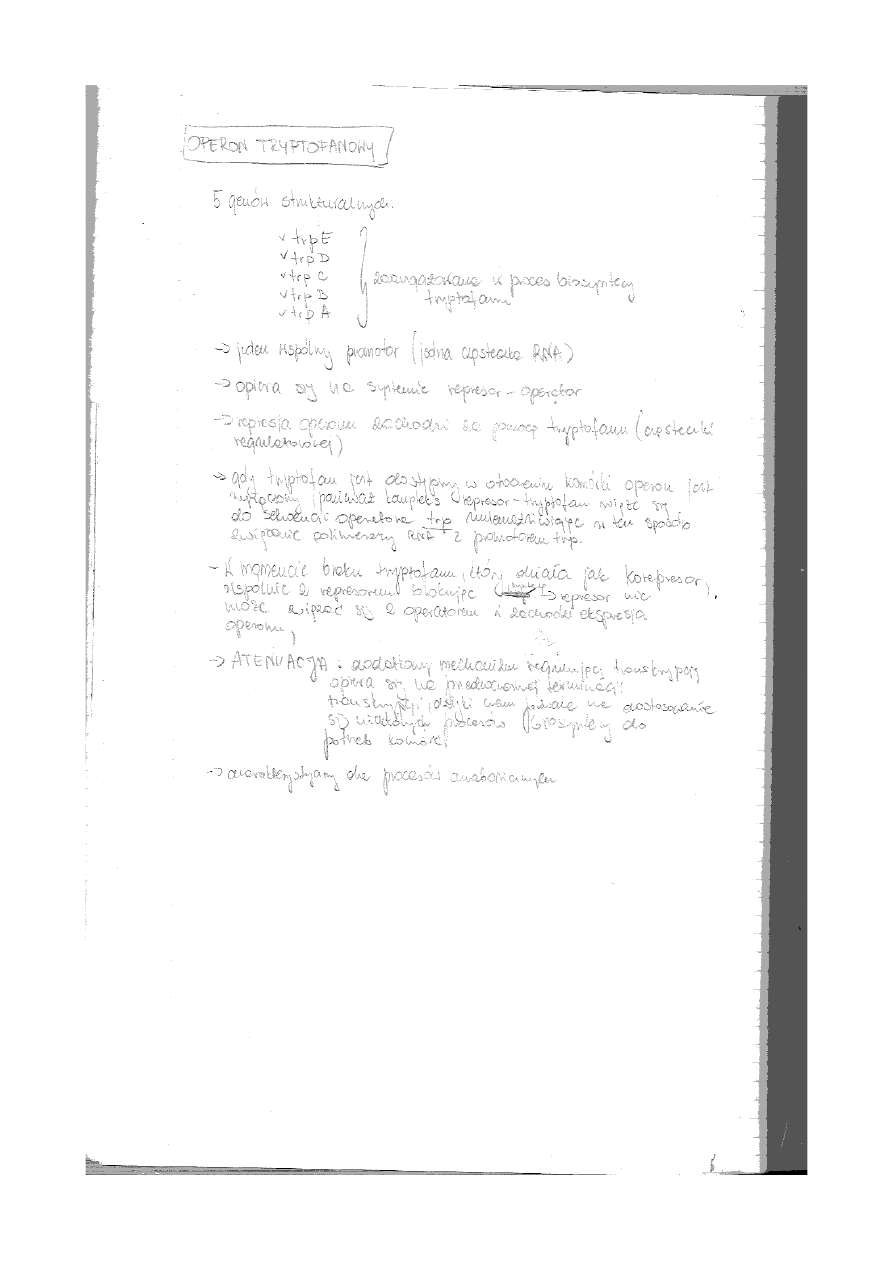 OPERON TRYPTOFANOWY
5 genów strukturalnych:
✓ trp E
✓ trp D
✓ trp C
✓ trp B
✓ trp A
zaangażowane w proces biosyntezy
tryptofanu
→ jeden wspólny promotor (jedna cząsteczka RNA)
→ opiera się na systemie represor - operator
→ represja operonu zachodzi za pomocą tryptofanu (cząsteczki
regulatorowej)
→ gdy tryptofan jest dostępny w otoczeniu komórki operon jest
wyłączony, ponieważ kompleks represor-tryptofan wiąże się
do sekwencji operatora trp uniemożliwiając w ten sposób
związanie polimerazy RNA z promotorem trp.
- W momencie braku tryptofanu, który działa jak korepresor,
wspólnie z represorem blokując represor nie
może związać się z operatorem i zachodzi ekspresja
operonu
→ ATENUACJA : dodatkowy mechanizm regulującą transkrypcję
opiera się na przedwczesnej terminacji
transkrypcji, dzięki czemu pozwala na dostosowanie
się niektórych procesów biosyntezy do
potrzeb komórki
→ charakterystyczny dla procesów anabolicznych